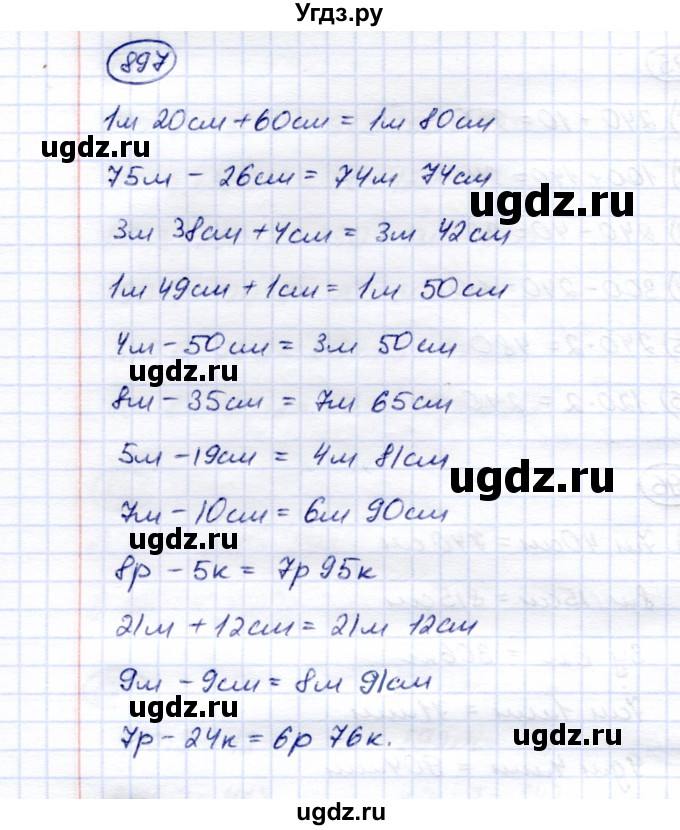 Угдз.ру
897
1м 20см + 60см = 1м 80см
ugdz.ru
75м - 26см = 74м 74см
ugdz.ru
3м 38см + 4см = 3м 42см
1м 49см + 1см = 1м 50см
4м - 50см = 3м 50см
ugdz.ru
8м - 35см = 7м 65см
5м - 19см = 4м 81см
ugdz.ru
7м - 10см = 6м 90см
ugdz.ru
8р - 5к = 7р 95к
21м + 12см = 21м 12см
9м - 9см = 8м 91см
ugdz.ru
ugdz.ru
7р - 24к = 6р 76к.
ugdz.ru